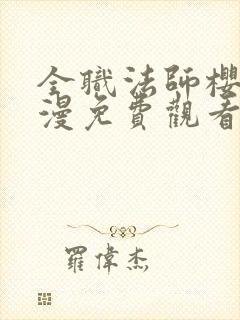 全職法師櫻
漫免費觀看
羅偉杰